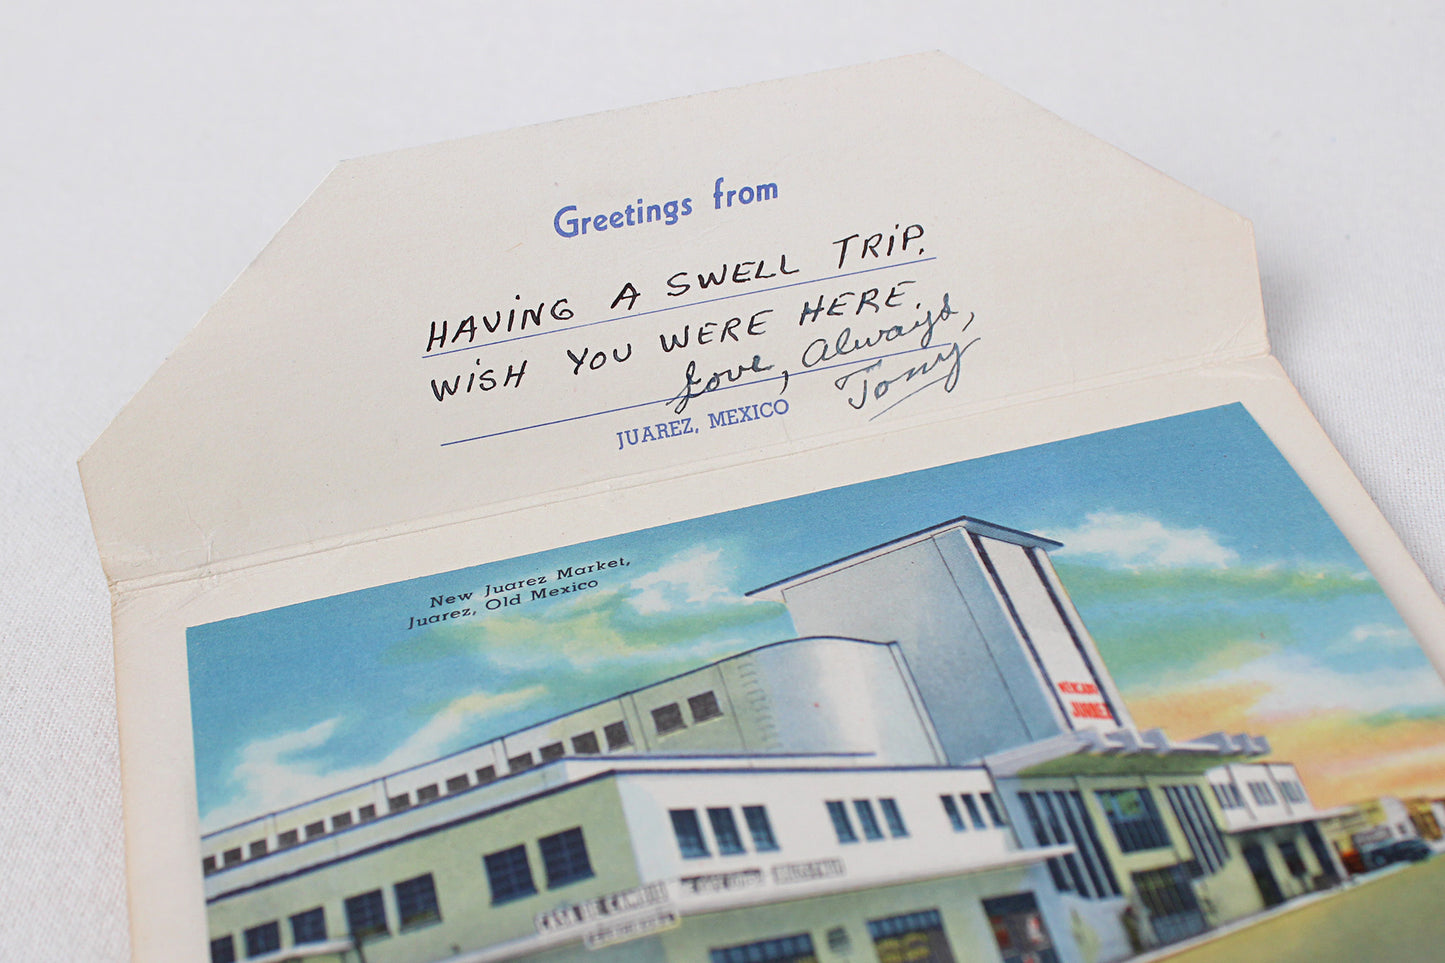 Greetings from
HAVING A SWELL TRIP.
WISH YOU WERE HERE.
Love, Always,
Tony
JUAREZ, MEXICO
New Juarez Market,
Juarez, Old Mexico
MERCADO
JUAREZ